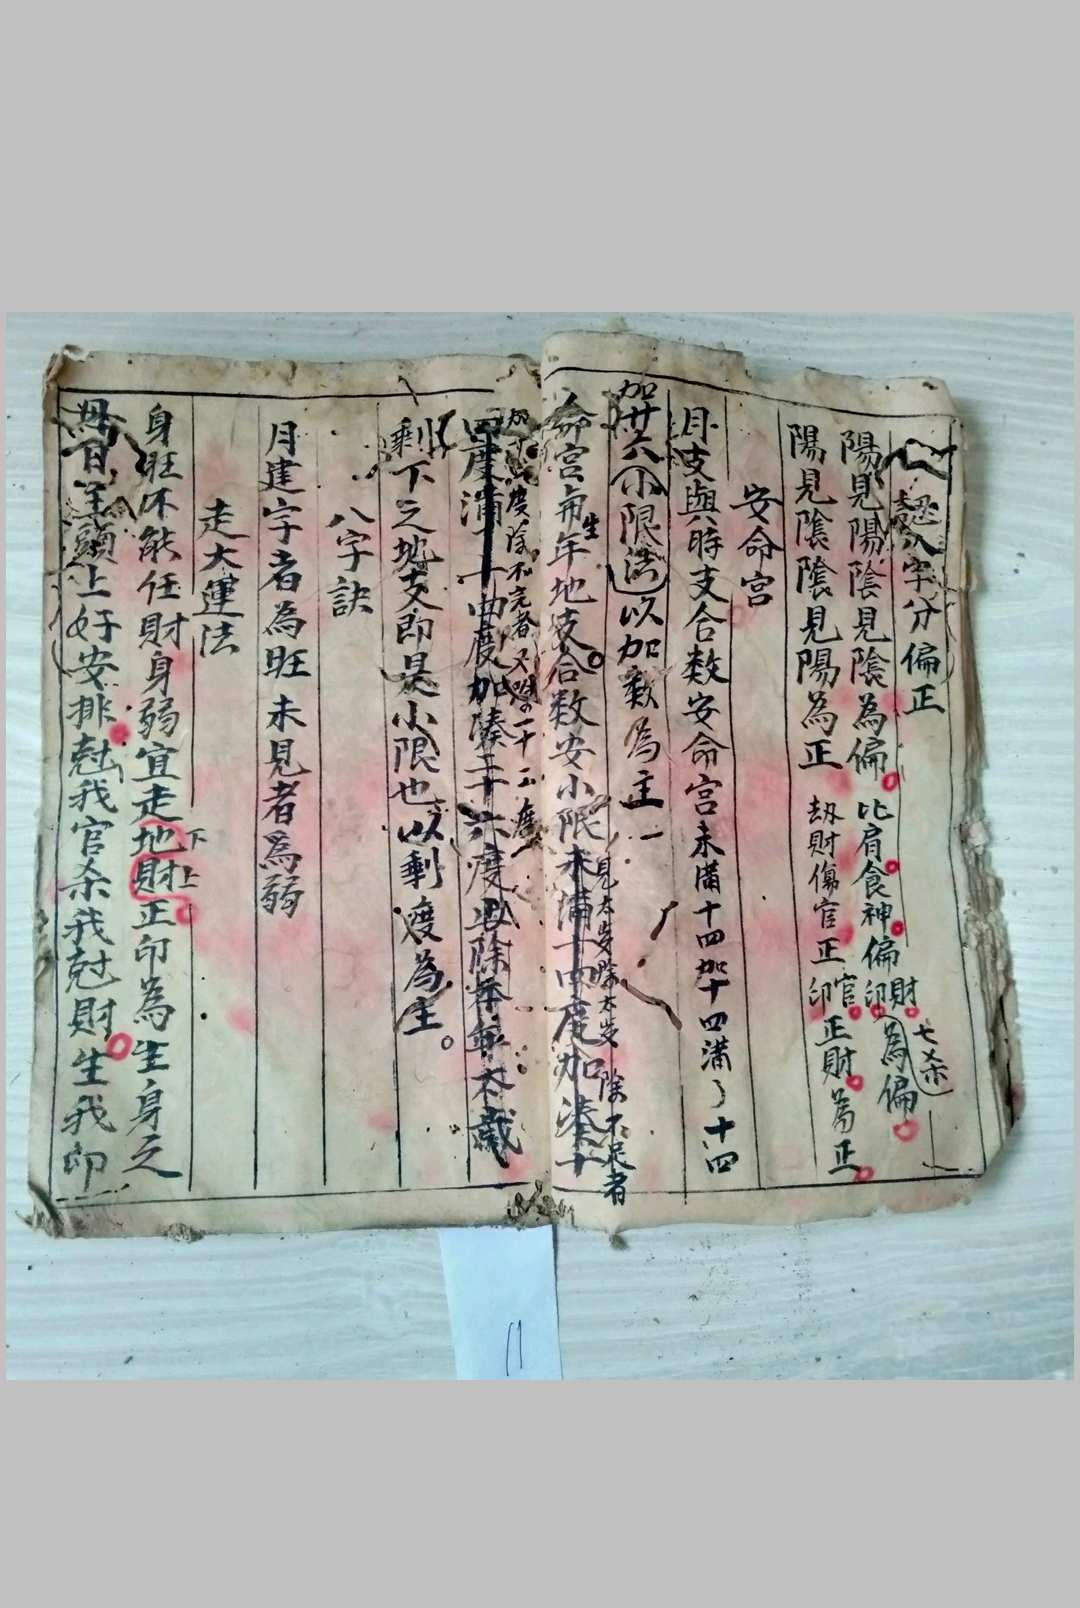 八字分偏正
陽見陽陰見陰為偏 比肩食神偏財偏印七殺為偏
陽見陰陰見陽為正 劫財傷官正官正印正財為正
安命宮
月支與時支合数安命宮未滿十四加十四滿了十四
加廿六 小限法 以加剩為主
見太岁除太岁 除不足者
命宮每生年地支合数安小限未滿十四度加湊十
四度滿十四度加湊二十六度
度除不完者又除一十二度
剩下之地支即是小限也以剩度為主
八字訣
月建字者為旺未見者為弱
走大運法
身旺不能任財身弱宜走地財正印為生身之
下上
頭上好安排尅我官杀我尅財生我印
11